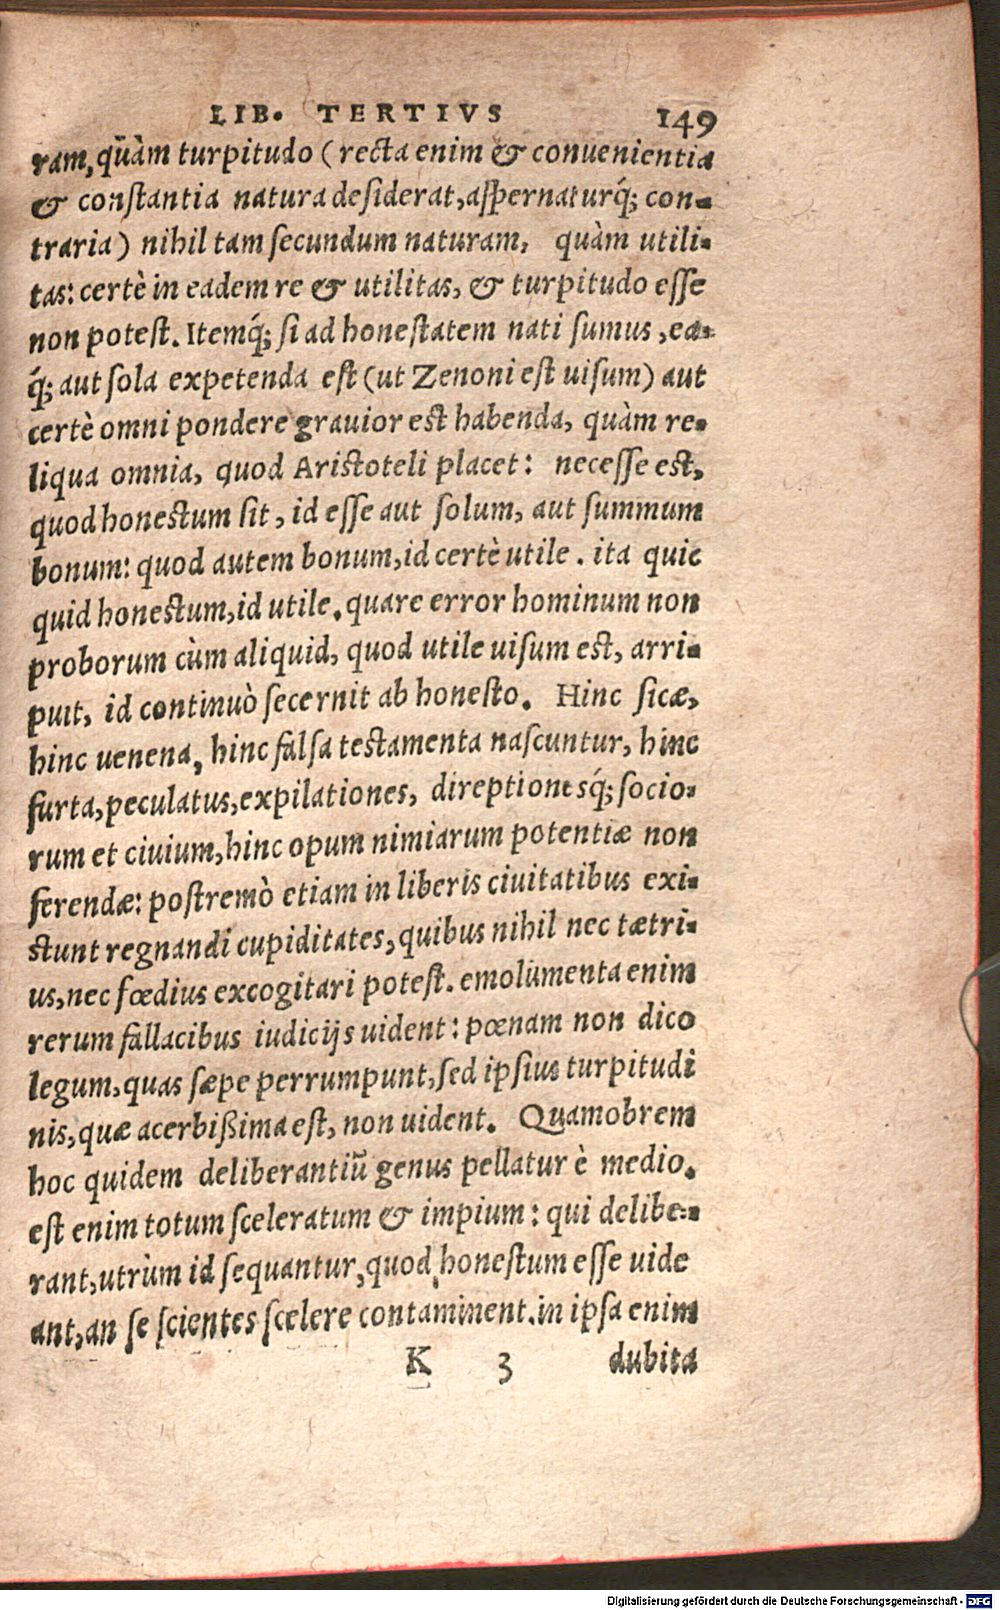 LIB. TERTIVS 149
ram, quàm turpitudo (recta enim & conuenientia
& conſtantia natura deſiderat, aſpernaturq́; con-
traria) nihil tam ſecundum naturam, quàm utili-
tas: certè in eadem re & utilitas, & turpitudo eſſe
non poteſt. Itemq́; ſi ad honeſtatem nati ſumus, ea-
q́; aut ſola expetenda eſt (ut Zenoni eſt uiſum) aut
certè omni pondere grauior eſt habenda, quàm re-
liqua omnia, quod Ariſtoteli placet: neceſſe eſt,
quod honeſtum ſit, id eſſe aut ſolum, aut ſummum
bonum: quod autem bonum, id certè utile. ita quic
quid honeſtum, id utile. quare error hominum non
proborum cùm aliquid, quod utile uiſum eſt, arri-
puit, id continuò ſecernit ab honeſto. Hinc ſicæ,
hinc uenena, hinc falſa teſtamenta naſcuntur, hinc
furta, peculatus, expilationes, direptionesq́; ſocio-
rum et ciuium, hinc opum nimiarum potentiæ non
ferendæ: poſtremò etiam in liberis ciuitatibus exi-
ſtunt regnandi cupiditates, quibus nihil nec tætri-
us, nec fœdius excogitari poteſt. emolumenta enim
rerum fallacibus iudicijs uident: pœnam non dico
legum, quas ſæpe perrumpunt, ſed ipſius turpitudi
nis, quæ acerbißima eſt, non uident. Quamobrem
hoc quidem deliberantiũ genus pellatur è medio.
eſt enim totum ſceleratum & impium: qui delibe-
rant, utrùm id ſequantur, quod honeſtum eſſe uide
ant, an ſe ſcientes ſcelere contaminent. in ipſa enim
K 3 dubita
Digitalisierung gefördert durch die Deutsche Forschungsgemeinschaft - DFG